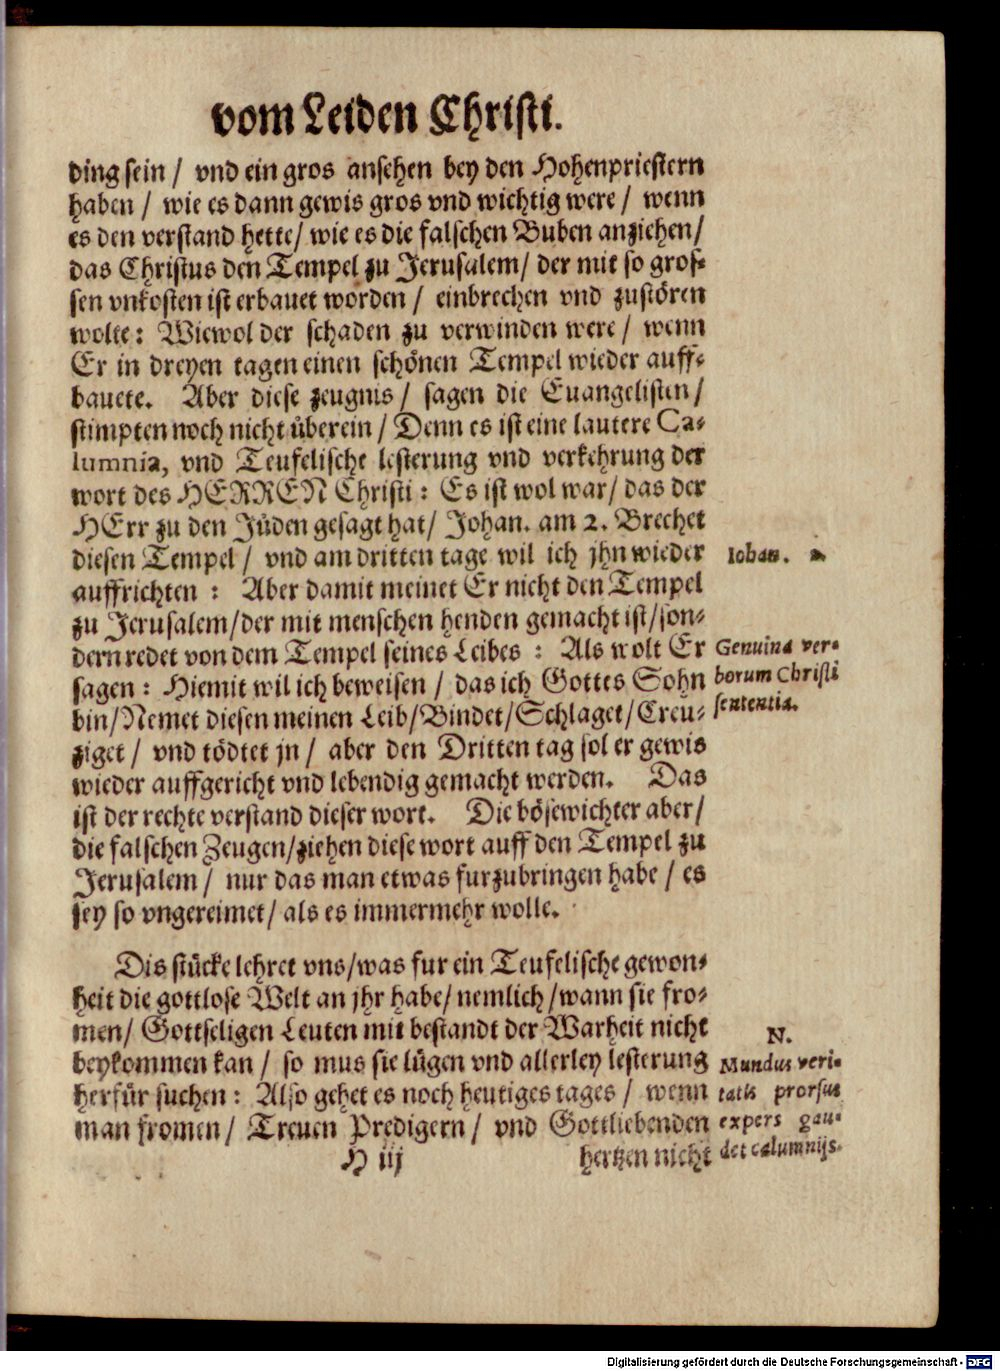 vom Leiden Christi.
ding sein / vnd ein gros ansehen bey den Hohenpriestern
haben / wie es dann gewis gros vnd wichtig were / wenn
es den verstand hette / wie es die falschen Buben anziehen /
das Christus den Tempel zu Jerusalem / der mit so gros-
sen vnkosten ist erbauet worden / einbrechen vnd zustören
wolte: Wiewol der schaden zu verwinden were / wenn
Er in dreyen tagen einen schönen Tempel wieder auff-
bauete. Aber diese zeugnis / sagen die Euangelisten /
stimpten noch nicht überein / Denn es ist eine lautere Ca-
lumnia, vnd Teufelische lesterung vnd verkehrung der
wort des HERREN Christi: Es ist wol war / das der
HErr zu den Jüden gesagt hat / Johan. am 2. Brechet
diesen Tempel / vnd am dritten tage wil ich jhn wieder
auffrichten: Aber damit meinet Er nicht den Tempel
zu Jerusalem / der mit menschen henden gemacht ist / son-
dern redet von dem Tempel seines Leibes: Als wolt Er
sagen: Hiemit wil ich beweisen / das ich Gottes Sohn
bin / Nemet diesen meinen Leib / Bindet / Schlaget / Creu-
ziget / vnd tödtet jn / aber den Dritten tag sol er gewis
wieder auffgericht vnd lebendig gemacht werden. Das
ist der rechte verstand dieser wort. Die bösewichter aber /
die falschen Zeugen / ziehen diese wort auff den Tempel zu
Jerusalem / nur das man etwas furzubringen habe / es
sey so vngereimet / als es immermehr wolle.
Dis stücke lehret vns / was fur ein Teufelische gewon-
heit die gottlose Welt an jhr habe / nemlich / wann sie fro-
men / Gottseligen Leuten mit bestandt der Warheit nicht
beykommen kan / so mus sie lügen vnd allerley lesterung
herfür suchen: Also gehet es noch heutiges tages / wenn
man fromen / Treuen Predigern / vnd Gottliebenden
H iij
hertzen nicht
Iohan. 2.
Genuina ver-
borum Christi
sententia.
N.
Mundus veri-
tatis prorsus
expers gau-
det calumnijs.
Digitalisierung gefördert durch die Deutsche Forschungsgemeinschaft - DFG